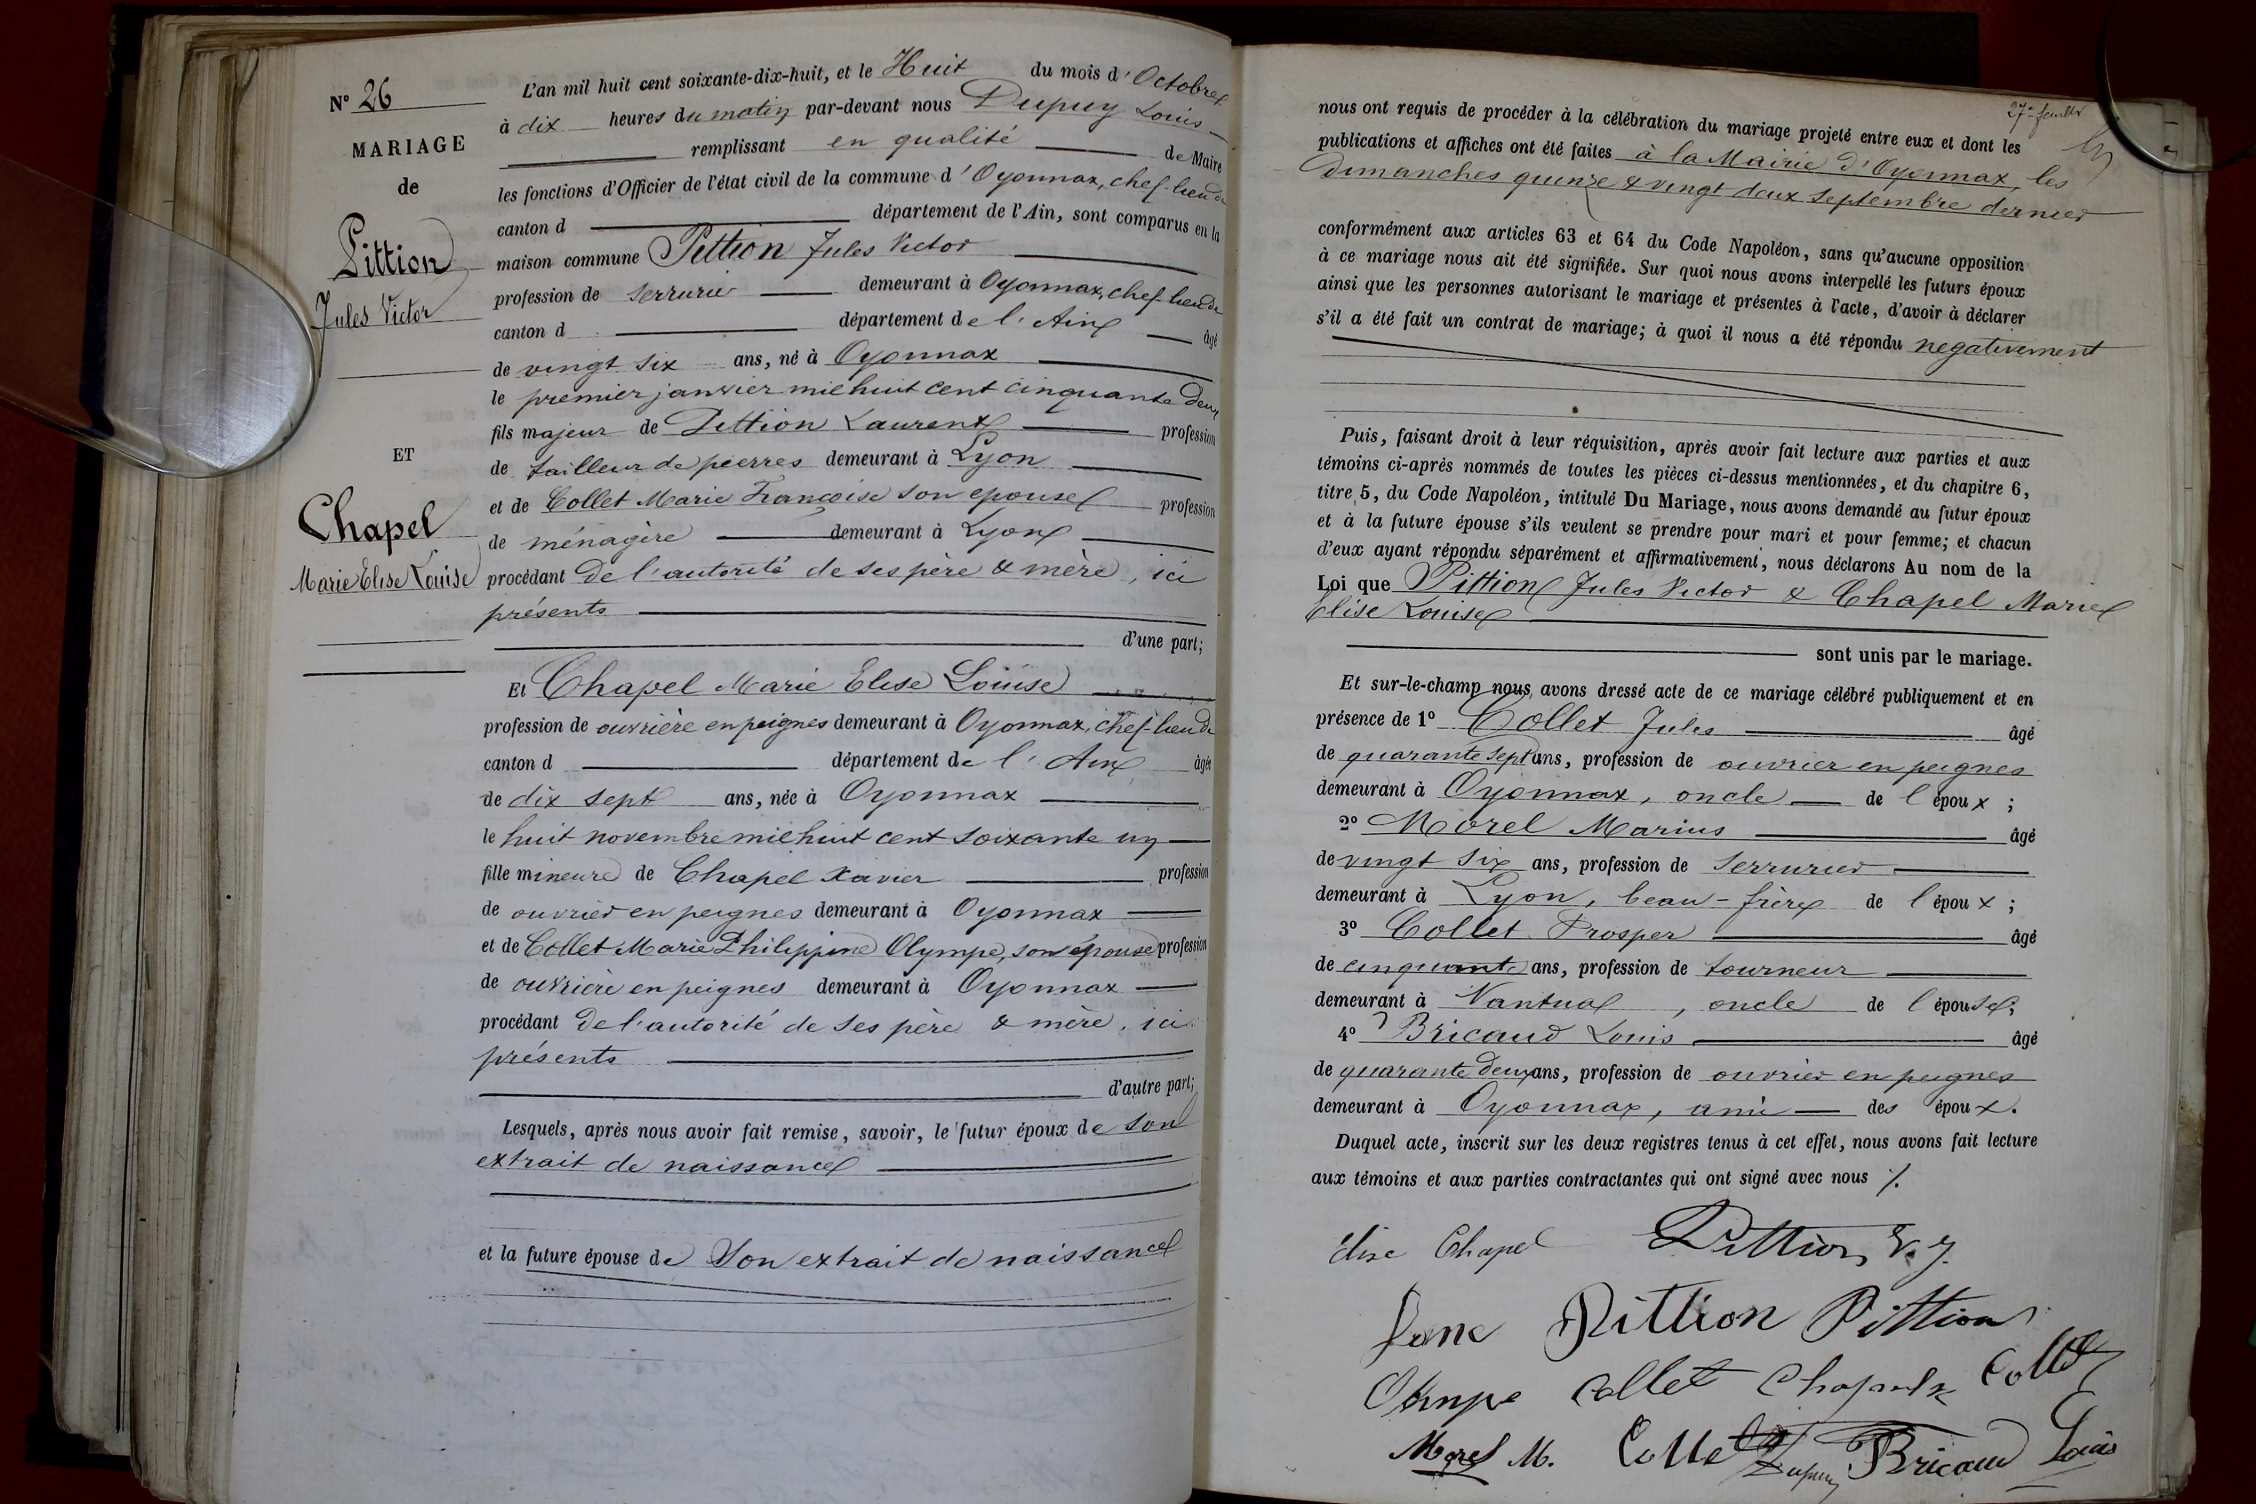 N° 26
MARIAGE
de
Pittion
Jules Victor
ET
Chapel
Marie Elise Louise
L'an mil huit cent soixante-dix-huit, et le Huit du mois d'Octobre
à dix heures du matin par-devant nous Dupuy Louis
remplissant en qualité de Maire
les fonctions d'Officier de l'état civil de la commune d'Oyonnax, chef-lieu de
canton d département de l'Ain, sont comparus en la
maison commune Pittion Jules Victor
profession de serrurier demeurant à Oyonnax, chef-lieu de
canton d département de l'Ain âgé
de vingt six ans, né à Oyonnax
le premier janvier mil huit cent cinquante deux
fils majeur de Pittion Laurent profession
de tailleur de pierres demeurant à Lyon
et de Collet Marie Françoise son epouse profession
de ménagère demeurant à Lyon
procédant de l'autorité de ses père & mère, ici
présents
d'une part;
Et Chapel Marie Elise Louise
profession de ouvrière en peignes demeurant à Oyonnax, chef-lieu de
canton d département de l'Ain âgée
de dix sept ans, née à Oyonnax
le huit novembre mil huit cent soixante un
fille mineure de Chapel Xavier profession
de ouvrier en peignes demeurant à Oyonnax
et de Collet Marie Philippine Olympe, son épouse profession
de ouvrière en peignes demeurant à Oyonnax
procédant de l'autorité de ses père & mère, ici
présents
d'autre part;
Lesquels, après nous avoir fait remise, savoir, le futur époux de son
extrait de naissance
et la future épouse de son extrait de naissance
27e feuillet
nous ont requis de procéder à la célébration du mariage projeté entre eux et dont les
publications et affiches ont été faites à la Mairie d'Oyonnax, les
dimanches quinze & vingt deux septembre dernier
conformément aux articles 63 et 64 du Code Napoléon, sans qu'aucune opposition
à ce mariage nous ait été signifiée. Sur quoi nous avons interpellé les futurs époux
ainsi que les personnes autorisant le mariage et présentes à l'acte, d'avoir à déclarer
s'il a été fait un contrat de mariage; à quoi il nous a été répondu negativement
Puis, faisant droit à leur réquisition, après avoir fait lecture aux parties et aux
témoins ci-après nommés de toutes les pièces ci-dessus mentionnées, et du chapitre 6,
titre 5, du Code Napoléon, intitulé Du Mariage, nous avons demandé au futur époux
et à la future épouse s'ils veulent se prendre pour mari et pour femme; et chacun
d'eux ayant répondu séparément et affirmativement, nous déclarons Au nom de la
Loi que Pittion Jules Victor & Chapel Marie
Elise Louise
sont unis par le mariage.
Et sur-le-champ nous avons dressé acte de ce mariage célébré publiquement et en
présence de 1° Collet Jules âgé
de quarante sept ans, profession de ouvrier en peignes
demeurant à Oyonnax, oncle de l'époux;
2° Morel Marius âgé
de vingt six ans, profession de serrurier
demeurant à Lyon, beau-frère de l'époux;
3° Collet Prosper âgé
de cinquante ans, profession de tourneur
demeurant à Nantua, oncle de l'épouse;
4° Bricaud Louis âgé
de quarante deux ans, profession de ouvrier en peignes
demeurant à Oyonnax, ami des époux.
Duquel acte, inscrit sur les deux registres tenus à cet effet, nous avons fait lecture
aux témoins et aux parties contractantes qui ont signé avec nous /.
élise Chapel Pittion V. J.
fane Pittion Pittion
Olympe Collet Chapel x Collet
Morel M. Collet Dupuy Bricaud Louis